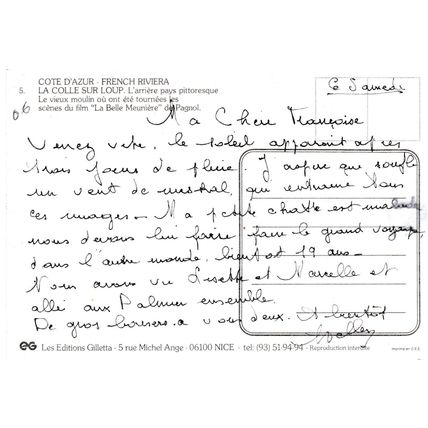 COTE D'AZUR - FRENCH RIVIERA
5. LA COLLE SUR LOUP. L'arrière pays pittoresque
Le vieux moulin où ont été tournées les
scènes du film "La Belle Meunière" de Pagnol.
06
Ce Samedi
Ma Chère Françoise
Venez vite, le soleil apparaît après
trois jours de pluie. J'espère que souffle
un vent de mistral, qui entraine tous
ces nuages - Ma petite chatte est malade
nous devons lui faire faire le grand voyage
dans l'autre monde, bientôt 19 ans -
Nous avons vu et Marcelle et
allé aux ensemble.
De gros baisers à vous deux. Et bientôt
eg Les Editions Gilletta - 5 rue Michel Ange - 06100 NICE - tel: (93) 51-94-94 - Reproduction interdite